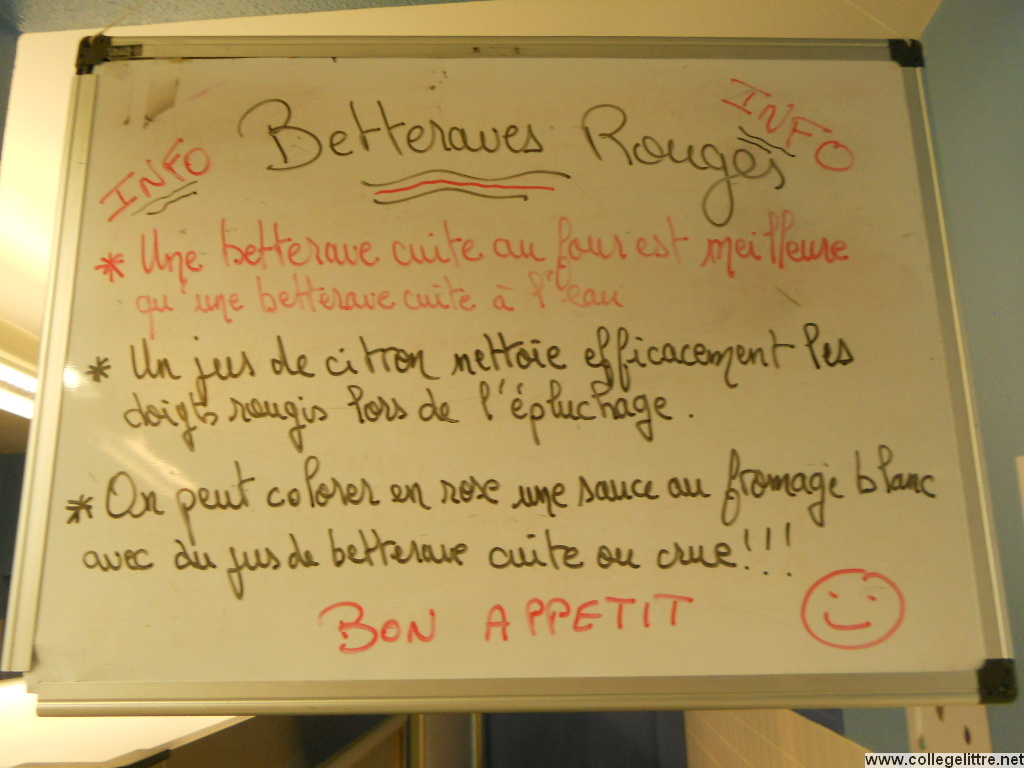 INFO
Betteraves Rouges
INFO
* Une betterave cuite au four est meilleure
qu'une betterave cuite à l'eau
* Un jus de citron nettoie efficacement les
doigts rougis lors de l'épluchage.
* On peut colorer en rose une sauce au fromage blanc
avec du jus de betterave cuite ou crue!!!
BON APPETIT
www.collegelittre.net